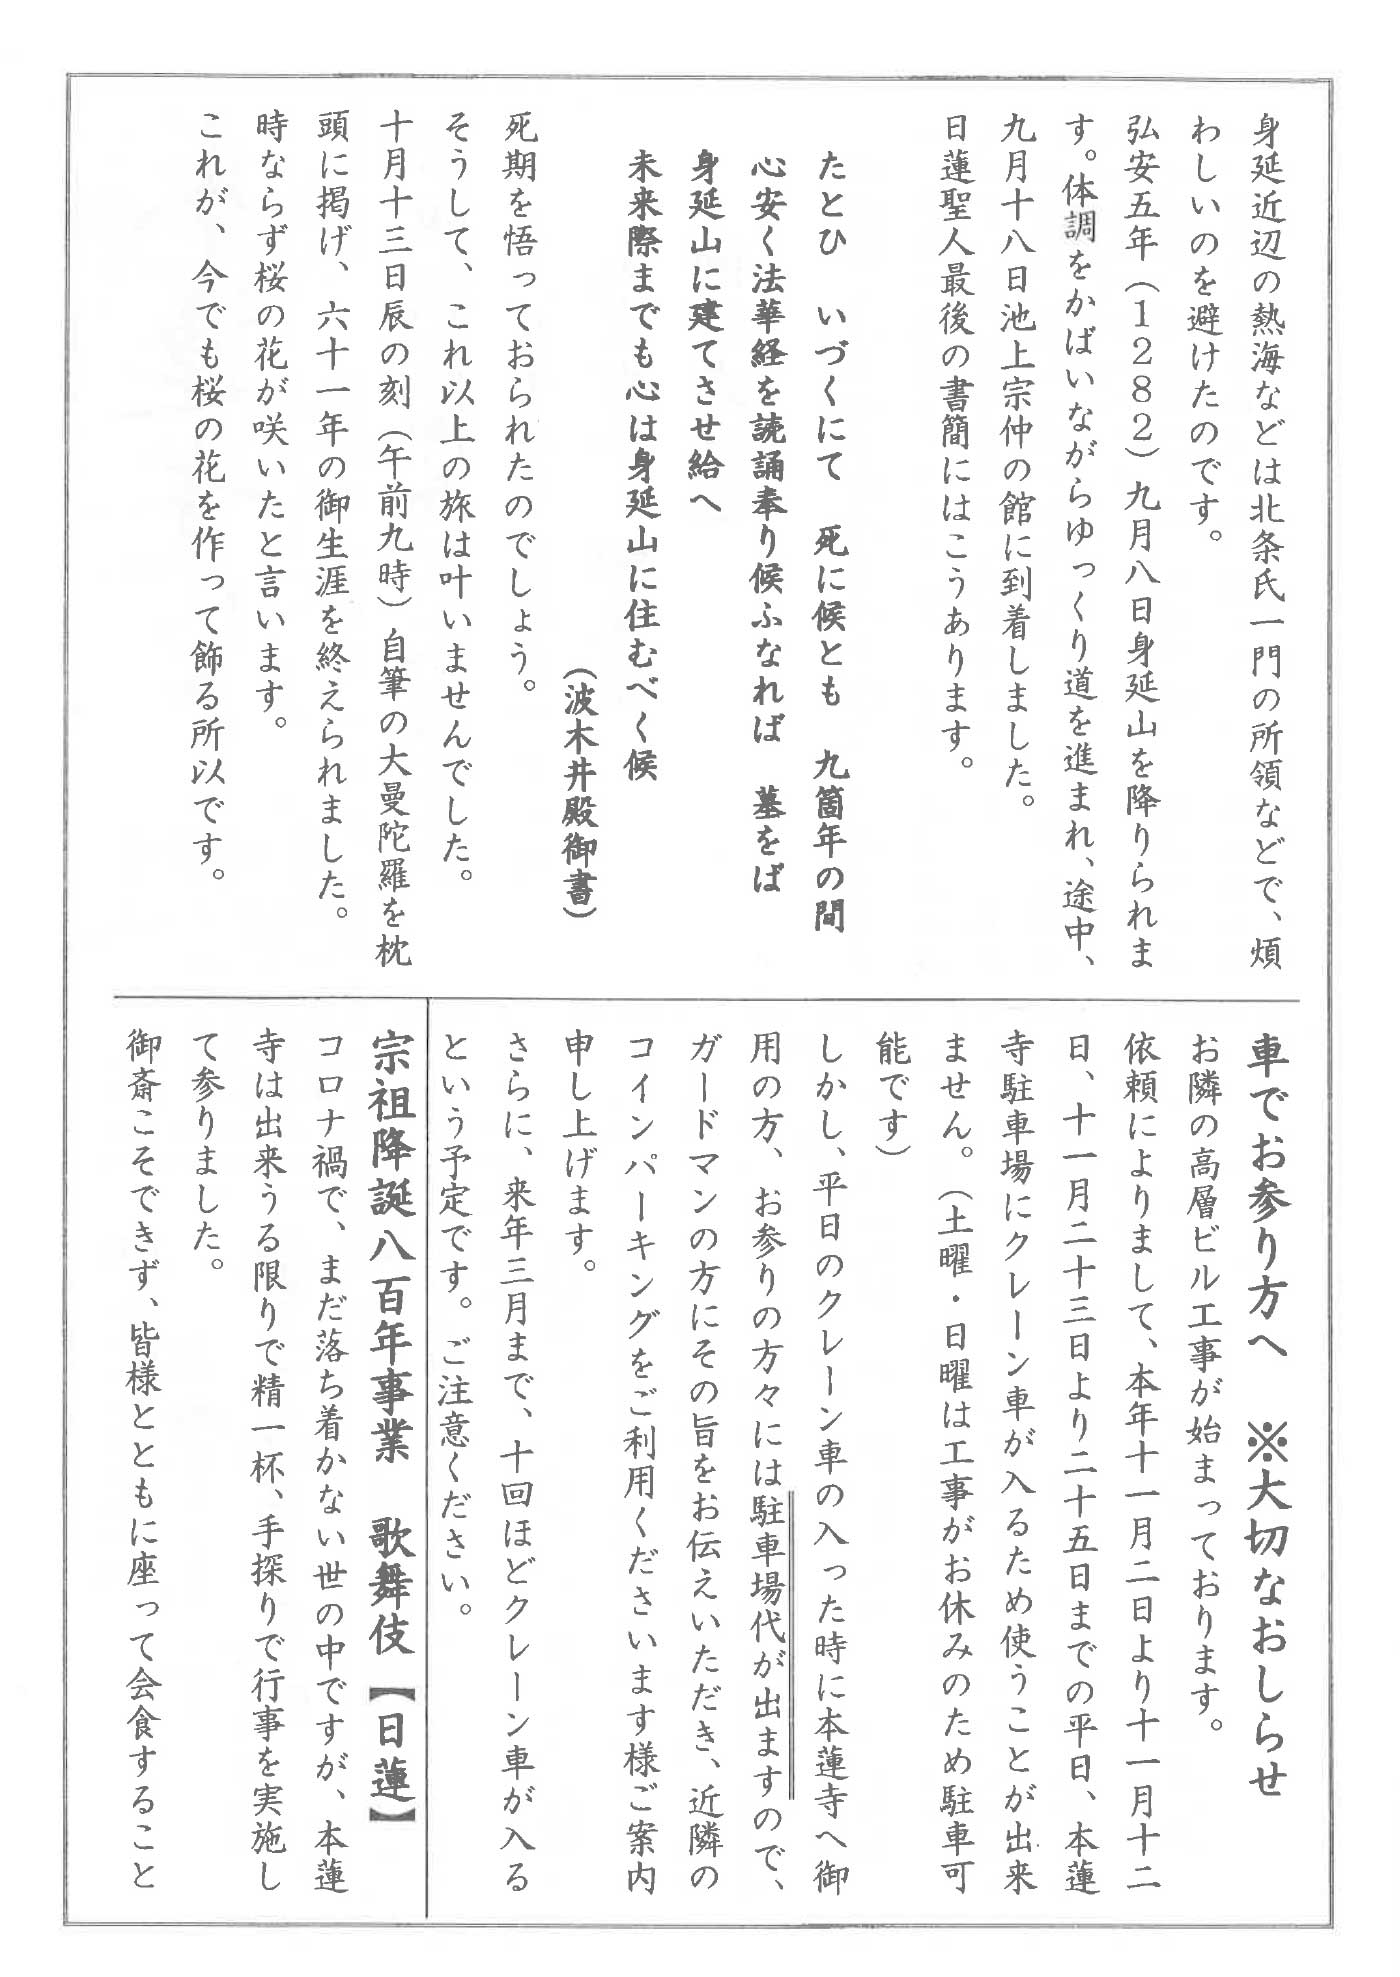 身延近辺の熱海などは北条氏一門の所領などで、煩
わしいのを避けたのです。
弘安五年（１２８２）九月八日身延山を降りられま
す。体調をかばいながらゆっくり道を進まれ、途中、
九月十八日池上宗仲の館に到着しました。
日蓮聖人最後の書簡にはこうあります。
たとひ　いづくにて　死に候とも　九箇年の間
心安く法華経を読誦奉り候ふなれば　墓をば
身延山に建てさせ給へ
未来際までも心は身延山に住むべく候
（波木井殿御書）
死期を悟っておられたのでしょう。
そうして、これ以上の旅は叶いませんでした。
十月十三日辰の刻（午前九時）自筆の大曼陀羅を枕
頭に掲げ、六十一年の御生涯を終えられました。
時ならず桜の花が咲いたと言います。
これが、今でも桜の花を作って飾る所以です。
車でお参り方へ　※大切なおしらせ
お隣の高層ビル工事が始まっております。
依頼によりまして、本年十一月二日より十一月十二
日、十一月二十三日より二十五日までの平日、本蓮
寺駐車場にクレーン車が入るため使うことが出来
ません。（土曜・日曜は工事がお休みのため駐車可
能です）
しかし、平日のクレーン車の入った時に本蓮寺へ御
用の方、お参りの方々には駐車場代が出ますので、
ガードマンの方にその旨をお伝えいただき、近隣の
コインパーキングをご利用くださいます様ご案内
申し上げます。
さらに、来年三月まで、十回ほどクレーン車が入る
という予定です。ご注意ください。
宗祖降誕八百年事業　歌舞伎【日蓮】
コロナ禍で、まだ落ち着かない世の中ですが、本蓮
寺は出来うる限りで精一杯、手探りで行事を実施し
て参りました。
御斎こそできず、皆様とともに座って会食すること